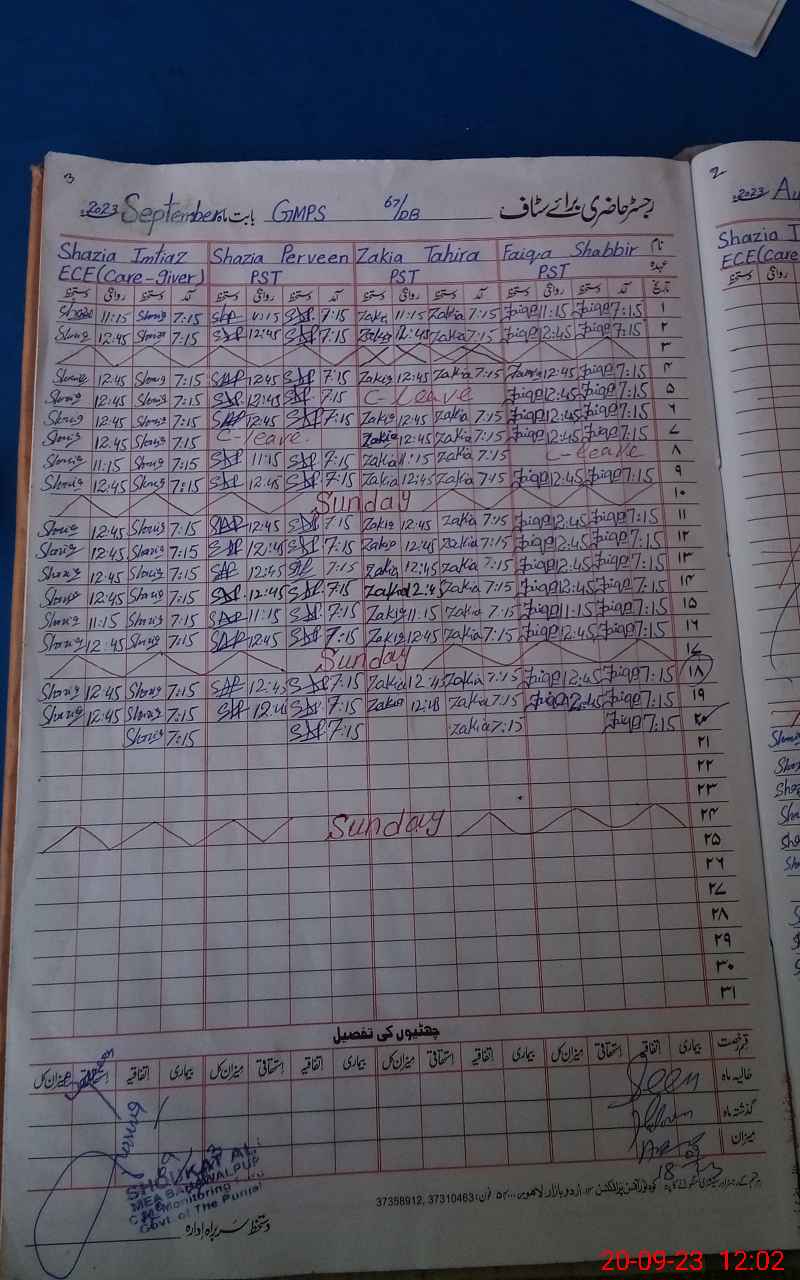 3
رجسٹر حاضری برائے سٹاف 67/DB GMPS بابت ماہ September 2023
نام Faiqa Shabbir Zakia Tahira Shazia Perveen Shazia Imtiaz
عہدہ PST PST PST ECE (Care-giver)
تاریخ آمد دستخط روانگی دستخط آمد دستخط روانگی دستخط آمد دستخط روانگی دستخط آمد دستخط روانگی دستخط
۱ 7:15 Faiqa 11:15 Faiqa 7:15 Zakia 11:15 Zakia 7:15 11:15 7:15 Shazia 11:15 Shazia
۲ 7:15 Faiqa 12:45 Faiqa 7:15 Zakia 12:45 Zakia 7:15 12:45 7:15 Shazia 12:45 Shazia
۳
۴ 7:15 Faiqa 12:45 Faiqa 7:15 Zakia 12:45 Zakia 7:15 12:45 7:15 Shazia 12:45 Shazia
۵ 7:15 Faiqa 12:45 Faiqa C-Leave 7:15 12:45 7:15 Shazia 12:45 Shazia
۶ 7:15 Faiqa 12:45 Faiqa 7:15 Zakia 12:45 Zakia 7:15 12:45 7:15 Shazia 12:45 Shazia
۷ 7:15 Faiqa 12:45 Faiqa 7:15 Zakia 12:45 Zakia C-leave. 7:15 Shazia 12:45 Shazia
۸ C-leave 7:15 Zakia 11:15 Zakia 7:15 11:15 7:15 Shazia 11:15 Shazia
۹ 7:15 Faiqa 12:45 Faiqa 7:15 Zakia 12:45 Zakia 7:15 12:45 7:15 Shazia 12:45 Shazia
۱۰ Sunday
۱۱ 7:15 Faiqa 12:45 Faiqa 7:15 Zakia 12:45 Zakia 7:15 12:45 7:15 Shazia 12:45 Shazia
۱۲ 7:15 Faiqa 12:45 Faiqa 7:15 Zakia 12:45 Zakia 7:15 12:45 7:15 Shazia 12:45 Shazia
۱۳ 7:15 Faiqa 12:45 Faiqa 7:15 Zakia 12:45 Zakia 7:15 12:45 7:15 Shazia 12:45 Shazia
۱۴ 7:15 Faiqa 12:45 Faiqa 7:15 Zakia 12:45 Zakia 7:15 12:45 7:15 Shazia 12:45 Shazia
۱۵ 7:15 Faiqa 11:15 Faiqa 7:15 Zakia 11:15 Zakia 7:15 11:15 7:15 Shazia 11:15 Shazia
۱۶ 7:15 Faiqa 12:45 Faiqa 7:15 Zakia 12:45 Zakia 7:15 12:45 7:15 Shazia 12:45 Shazia
۱۷ Sunday
۱۸ 7:15 Faiqa 12:45 Faiqa 7:15 Zakia 12:45 Zakia 7:15 12:45 7:15 Shazia 12:45 Shazia
۱۹ 7:15 Faiqa 12:45 Faiqa 7:15 Zakia 12:45 Zakia 7:15 12:45 7:15 Shazia 12:45 Shazia
۲۰ 7:15 Faiqa 7:15 Zakia 7:15 7:15 Shazia
۲۱
۲۲
۲۳
۲۴ Sunday
۲۵
۲۶
۲۷
۲۸
۲۹
۳۰
۳۱
چھٹیوں کی تفصیل
قسم رخصت بیماری اتفاقیہ استحقاقی میزان کل بیماری اتفاقیہ استحقاقی میزان کل بیماری اتفاقیہ استحقاقی میزان کل بیماری اتفاقیہ استحقاقی میزان کل
حالیہ ماہ Seen
گذشتہ ماہ
میزان
SHOUKAT ALI
MEA BAHAWALPUR
Monitoring
Govt of The Punjab
دستخط سربراہ ادارہ
اردو بازار لاہور فون: 37310463, 37358912
2
2023 Au
Shazia I
ECE (Care
20-09-23 12:02